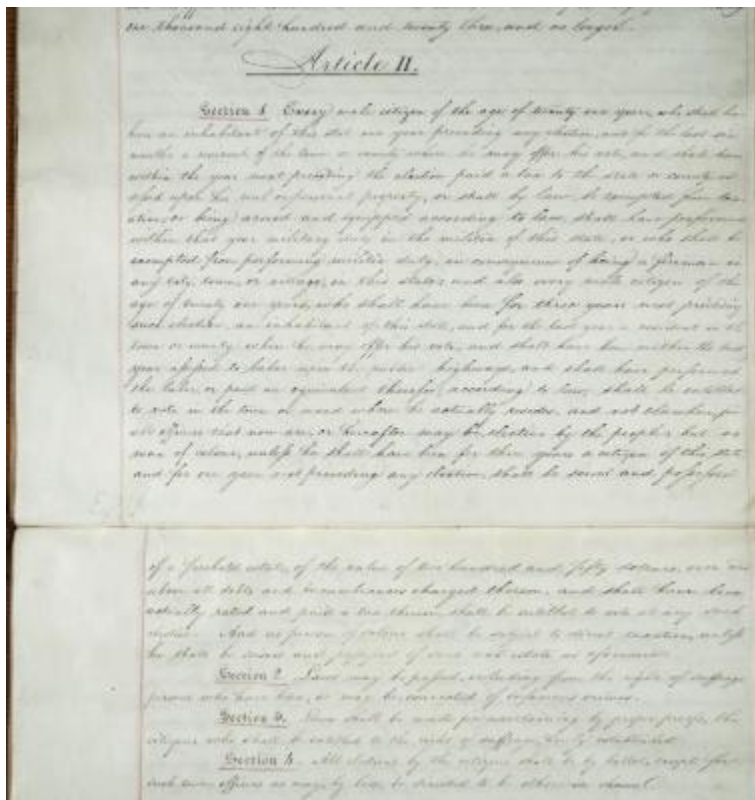 one thousand eight hundred and twenty three, and no longer.
Article II.
Section 1 Every male citizen of the age of twenty one years, who shall have
been an inhabitant of this state one year preceding any election, and for the last six
months a resident of the town or county where he may offer his vote, and shall have
within the year next preceding the election paid a tax to the state or county as-
sessed upon his real or personal property, or shall by law, be exempted from tax-
ation, or being armed and equipped according to law, shall have performed
within that year military duty in the militia of this state, or who shall be
exempted from performing militia duty, in consequence of being a fireman in
any city, town, or village, in this state; and also every male citizen of the
age of twenty one years, who shall have been for three years next preceding
such election, an inhabitant of this state, and for the last year a resident in the
town or county, where he may offer his vote, and shall have been within the last
year assessed to labor upon the public highways, and shall have performed
the labor, or paid an equivalent therefor, according to law, shall be entitled
to vote in the town or ward where he actually resides, and not elsewhere, for
all officers that now are, or hereafter may be, elective by the people; but no
man of colour, unless he shall have been for three years a citizen of this state
and for one year next preceding any election, shall be seized and possessed
of a freehold estate, of the value of two hundred and fifty dollars, over and
above all debts and incumbrances charged thereon, and shall have been
actually rated and paid a tax thereon, shall be entitled to vote at any such
election. And no person of colour shall be subject to direct taxation, unless
he shall be seized and possessed of such real estate as aforesaid.
Section 2. Laws may be passed, excluding from the right of suffrage
persons who have been, or may be, convicted of infamous crimes.
Section 3. Laws shall be made for ascertaining by proper proofs, the
citizens who shall be entitled to the right of suffrage, hereby established.
Section 4. All elections by the citizens shall be by ballot, except for
such town officers as may by law, be directed to be otherwise chosen.